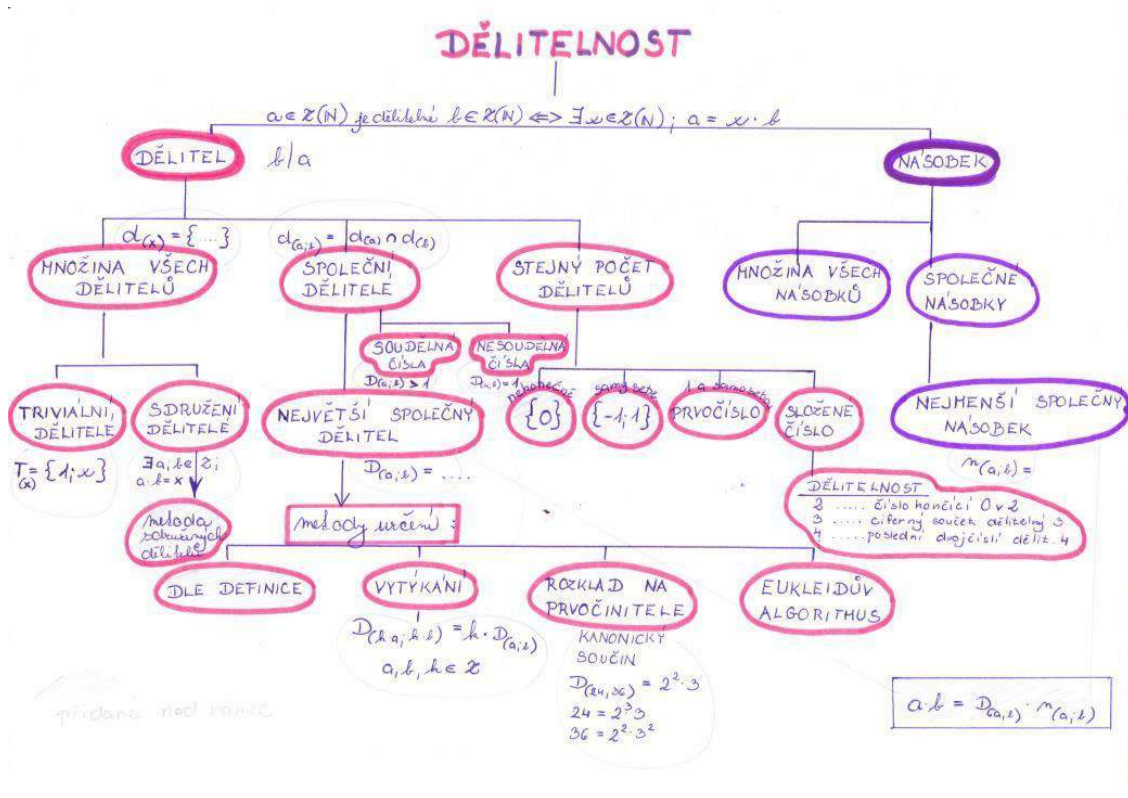 DĚLITELNOST
a ∈ Z(N) je dělitelné b ∈ Z(N) <=> ∃ x ∈ Z(N); a = x · b
DĚLITEL
b/a
NÁSOBEK
d(x) = {....}
MNOŽINA VŠECH
DĚLITELŮ
d(a;b) = d(a) ∩ d(b)
SPOLEČNÍ
DĚLITELÉ
STEJNÝ POČET
DĚLITELŮ
MNOŽINA VŠECH
NÁSOBKŮ
SPOLEČNÉ
NÁSOBKY
SOUDĚLNÁ
ČÍSLA
D(a;b) > 1
NESOUDĚLNÁ
ČÍSLA
D(a;b) = 1
TRIVIÁLNÍ
DĚLITELÉ
T(x) = {1; x}
SDRUŽENÍ
DĚLITELÉ
∃ a, b ∈ Z;
a · b = x
metoda
sdružených
dělitelů
NEJVĚTŠÍ SPOLEČNÝ
DĚLITEL
D(a;b) = ....
metody určení:
nekonečně
{0}
samy sebe
{-1; 1}
1 a samo sebou
PRVOČÍSLO
SLOŽENÉ
ČÍSLO
NEJMENŠÍ SPOLEČNÝ
NÁSOBEK
n(a;b) =
DĚLITELNOST
2 ..... číslo končící 0 v 2
3 ..... ciferný součet dělitelný 3
4 ..... poslední dvojčíslí dělit. 4
DLE DEFINICE
VYTÝKÁNÍ
D(k·a; k·b) = k · D(a;b)
a, b, k ∈ Z
ROZKLAD NA
PRVOČINITELE
KANONICKÝ
SOUČIN
D(24,36) = 2² · 3
24 = 2³ 3
36 = 2² · 3²
EUKLEIDŮV
ALGORITMUS
a · b = D(a,b) · n(a;b)
přidané nad rámec